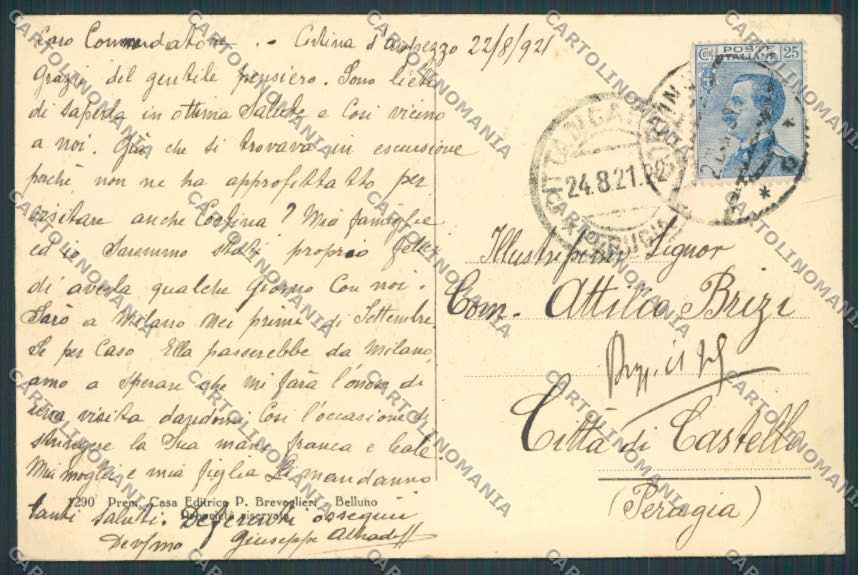 Caro Commendatore. - Cortina d'Ampezzo 22/8/921
Grazie del gentile pensiero. Sono lieto
di saperla in ottima Salute e Così vicino
a noi. Già che si trovava in escursione
perchè non ne ha approfittatto per
visitare anche Cortina? Mia famiglia
ed io Saremmo Stati proprio felici
di averla qualche Giorno Con noi.
Sarò a Milano nei primi di Settembre.
Se per Caso Ella passerebbe da Milano,
amo a Sperare che mi farà l'onore di
una visita dandomi Così l'occasione di
stringere la Sua mano franca e leale
Mia moglie e mia figlia Le mandanno
tanti Saluti. Deferenti ossequi
Devmo Giuseppe
7290 Prem. Casa Editrice P. Breveglieri - Belluno
Proprietà riservata
POSTE
ITALIANE
Cent. 25
24.8.21
Illustrissimo Signor
Com. Attilio Brizi
Città di Castello
(Perugia)
CARTOLINOMANIA